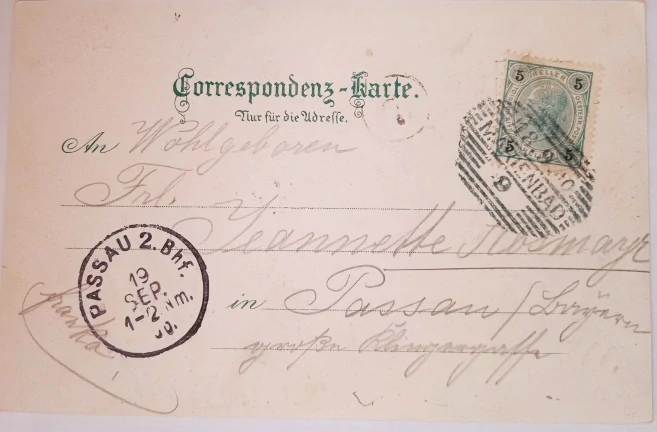 Correspondenz-Karte.
Nur für die Adresse.
5 HELLER 5
5 5
MARIENBAD
9
An Wohlgeboren
Frl.
Jeannette Kosmayr
in Passau / Bayern
große Klingergasse
PASSAU 2. Bhf.
19
SEP.
1-2 Nm.
00.